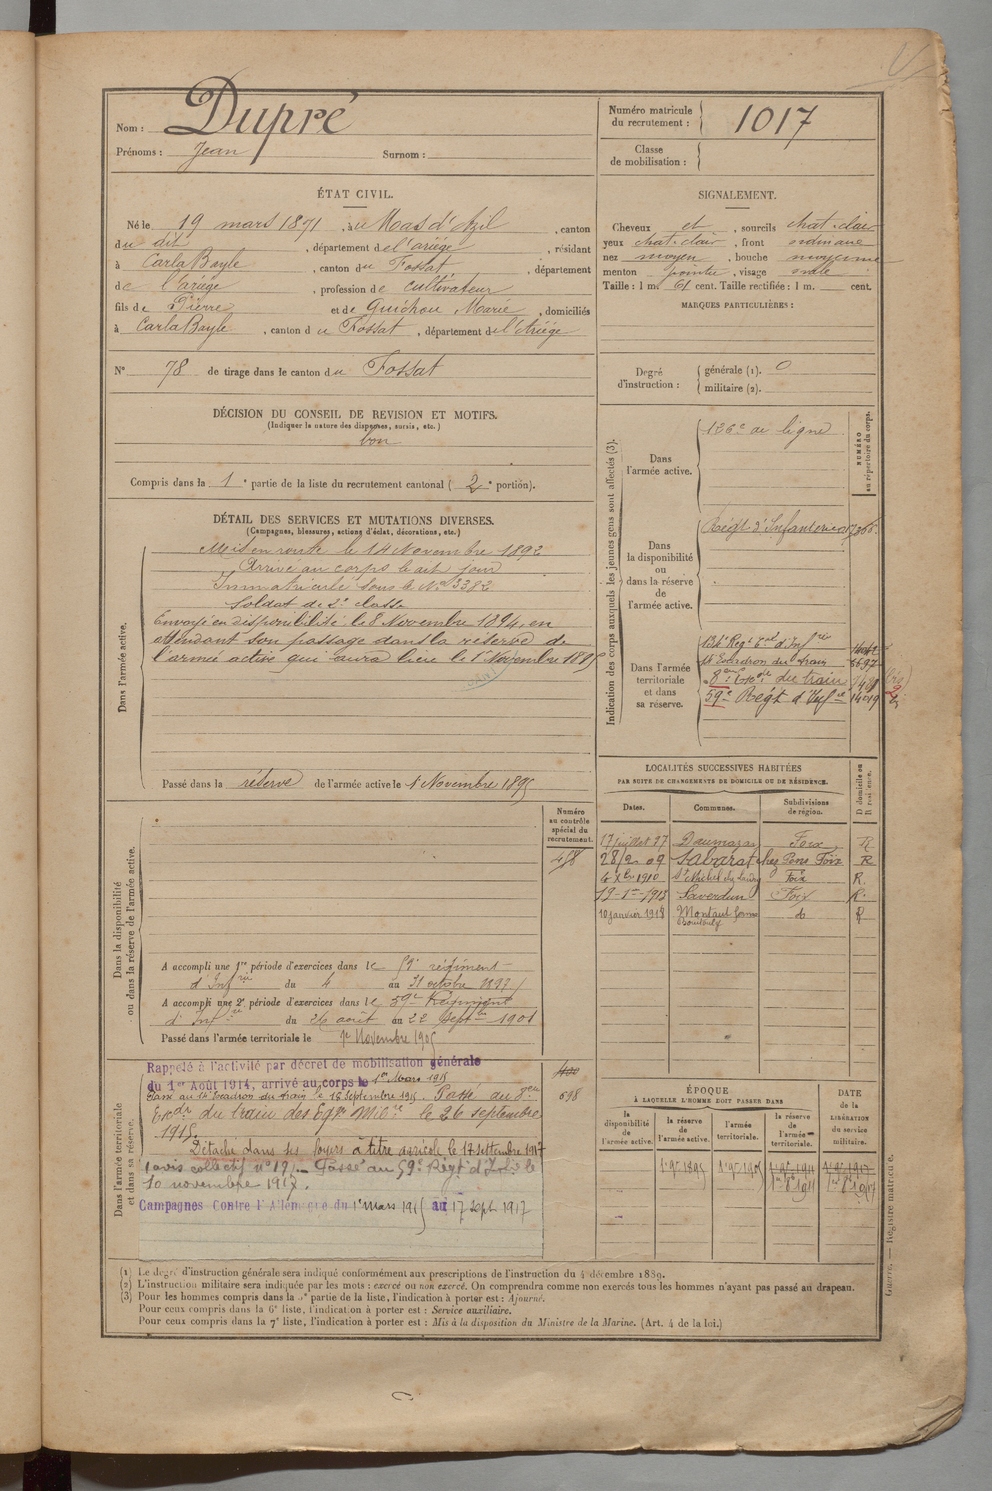 Nom : Dupré
Prénoms : Jean Surnom :
Numéro matricule
du recrutement : 1017
Classe
de mobilisation :
ÉTAT CIVIL.
Né le 19 mars 1871, à u Mas d'Azil, canton
du dit, département de l'ariége, résidant
à Carla Bayle, canton du Fossat, département
de l'ariége, profession de cultivateur
fils de Pierre et de Guichou Marie, domiciliés
à Carla Bayle, canton du Fossat, département de l'Ariége
N° 78 de tirage dans le canton du Fossat
SIGNALEMENT.
Cheveux et, sourcils chat-clair
yeux chat-clair, front ordinaire
nez moyen, bouche moyenne
menton pointu, visage ovale
Taille : 1 m. 61 cent. Taille rectifiée : 1 m. cent.
MARQUES PARTICULIÈRES :
Degré
d'instruction :
générale (1). 0
militaire (2).
DÉCISION DU CONSEIL DE REVISION ET MOTIFS.
(Indiquer la nature des dispenses, sursis, etc.)
bon
Compris dans la 1e partie de la liste du recrutement cantonal (2e portion).
DÉTAIL DES SERVICES ET MUTATIONS DIVERSES.
(Campagnes, blessures, actions d'éclat, décorations, etc.)
Dans l'armée active.
Mis en route le 14 Novembre 1892
Arrivé au corps le dit jour
Immatriculé sous le No 3382
Soldat de 2e classe
Envoyé en disponibilité le 8 Novembre 1894, en
attendant son passage dans la réserve de
l'armée active qui aura lieu le 1 Novembre 1895
Passé dans la réserve de l'armée active le 1 Novembre 1895
Indication des corps auxquels les jeunes gens sont affectés (3).
NUMÉRO
au répertoire du corps.
Dans
l'armée active.
126e de ligne
Dans
la disponibilité
ou
dans la réserve
de
l'armée active.
Régt d'Infanterie
Dans l'armée
territoriale
et dans
sa réserve.
Escadron du train
du train
59e Régt d'Inf
LOCALITÉS SUCCESSIVES HABITÉES
PAR SUITE DE CHANGEMENTS DE DOMICILE OU DE RÉSIDENCE.
Dates. Communes. Subdivisions de région. D domicile ou R résidence.
17 juillet 97 Daumazan Foix R
28/2 09 Sabarat Foix R
1910 Foix R.
19-1-1913 Saverdun Foix R.
10 janvier 1918 Montaut do R
Dans la disponibilité
ou dans la réserve de l'armée active.
Numéro
au contrôle
spécial du
recrutement.
458
A accompli une 1re période d'exercices dans le 59e régiment
d'Infrie du 4 au 31 octobre 1897
A accompli une 2e période d'exercices dans le 59e Régiment
d'Infrie du 26 août au 22 septbre 1901
Passé dans l'armée territoriale le 1er Novembre 1905
Dans l'armée territoriale
et dans sa réserve.
Rappelé à l'activité par décret de mobilisation générale
du 1er Août 1914, arrivé au corps le 1er Mars 1915
Passé au Escadron du train le 18 Septembre 1915. Passé au 8e
du train des Eqges Mil le 26 septembre
1915.
Détaché dans ses foyers à titre agricole le 17 septembre 1917
avis collectif n° 191 – Passé au 59e Régt d'Infie le
10 novembre 1917.
Campagnes Contre l'Allemagne du 1er mars 1915 au 17 sept 1917
698
ÉPOQUE
À LAQUELLE L'HOMME DOIT PASSER DANS
la disponibilité de l'armée active. la réserve de l'armée active. l'armée territoriale. la réserve de l'armée territoriale.
DATE
de la
LIBÉRATION
du service
militaire.
1er 9bre 1895 1er 9bre 1905 1er 9bre 1911 1er 9bre 1917
1er 8bre 1911 1er 8bre 1917
Guerre. — Registre matricule.
(1) Le degré d'instruction générale sera indiqué conformément aux prescriptions de l'instruction du 4 décembre 1889.
(2) L'instruction militaire sera indiquée par les mots : exercé ou non exercé. On comprendra comme non exercés tous les hommes n'ayant pas passé au drapeau.
(3) Pour les hommes compris dans la 5e partie de la liste, l'indication à porter est : Ajourné.
Pour ceux compris dans la 6e liste, l'indication à porter est : Service auxiliaire.
Pour ceux compris dans la 7e liste, l'indication à porter est : Mis à la disposition du Ministre de la Marine. (Art. 4 de la loi.)